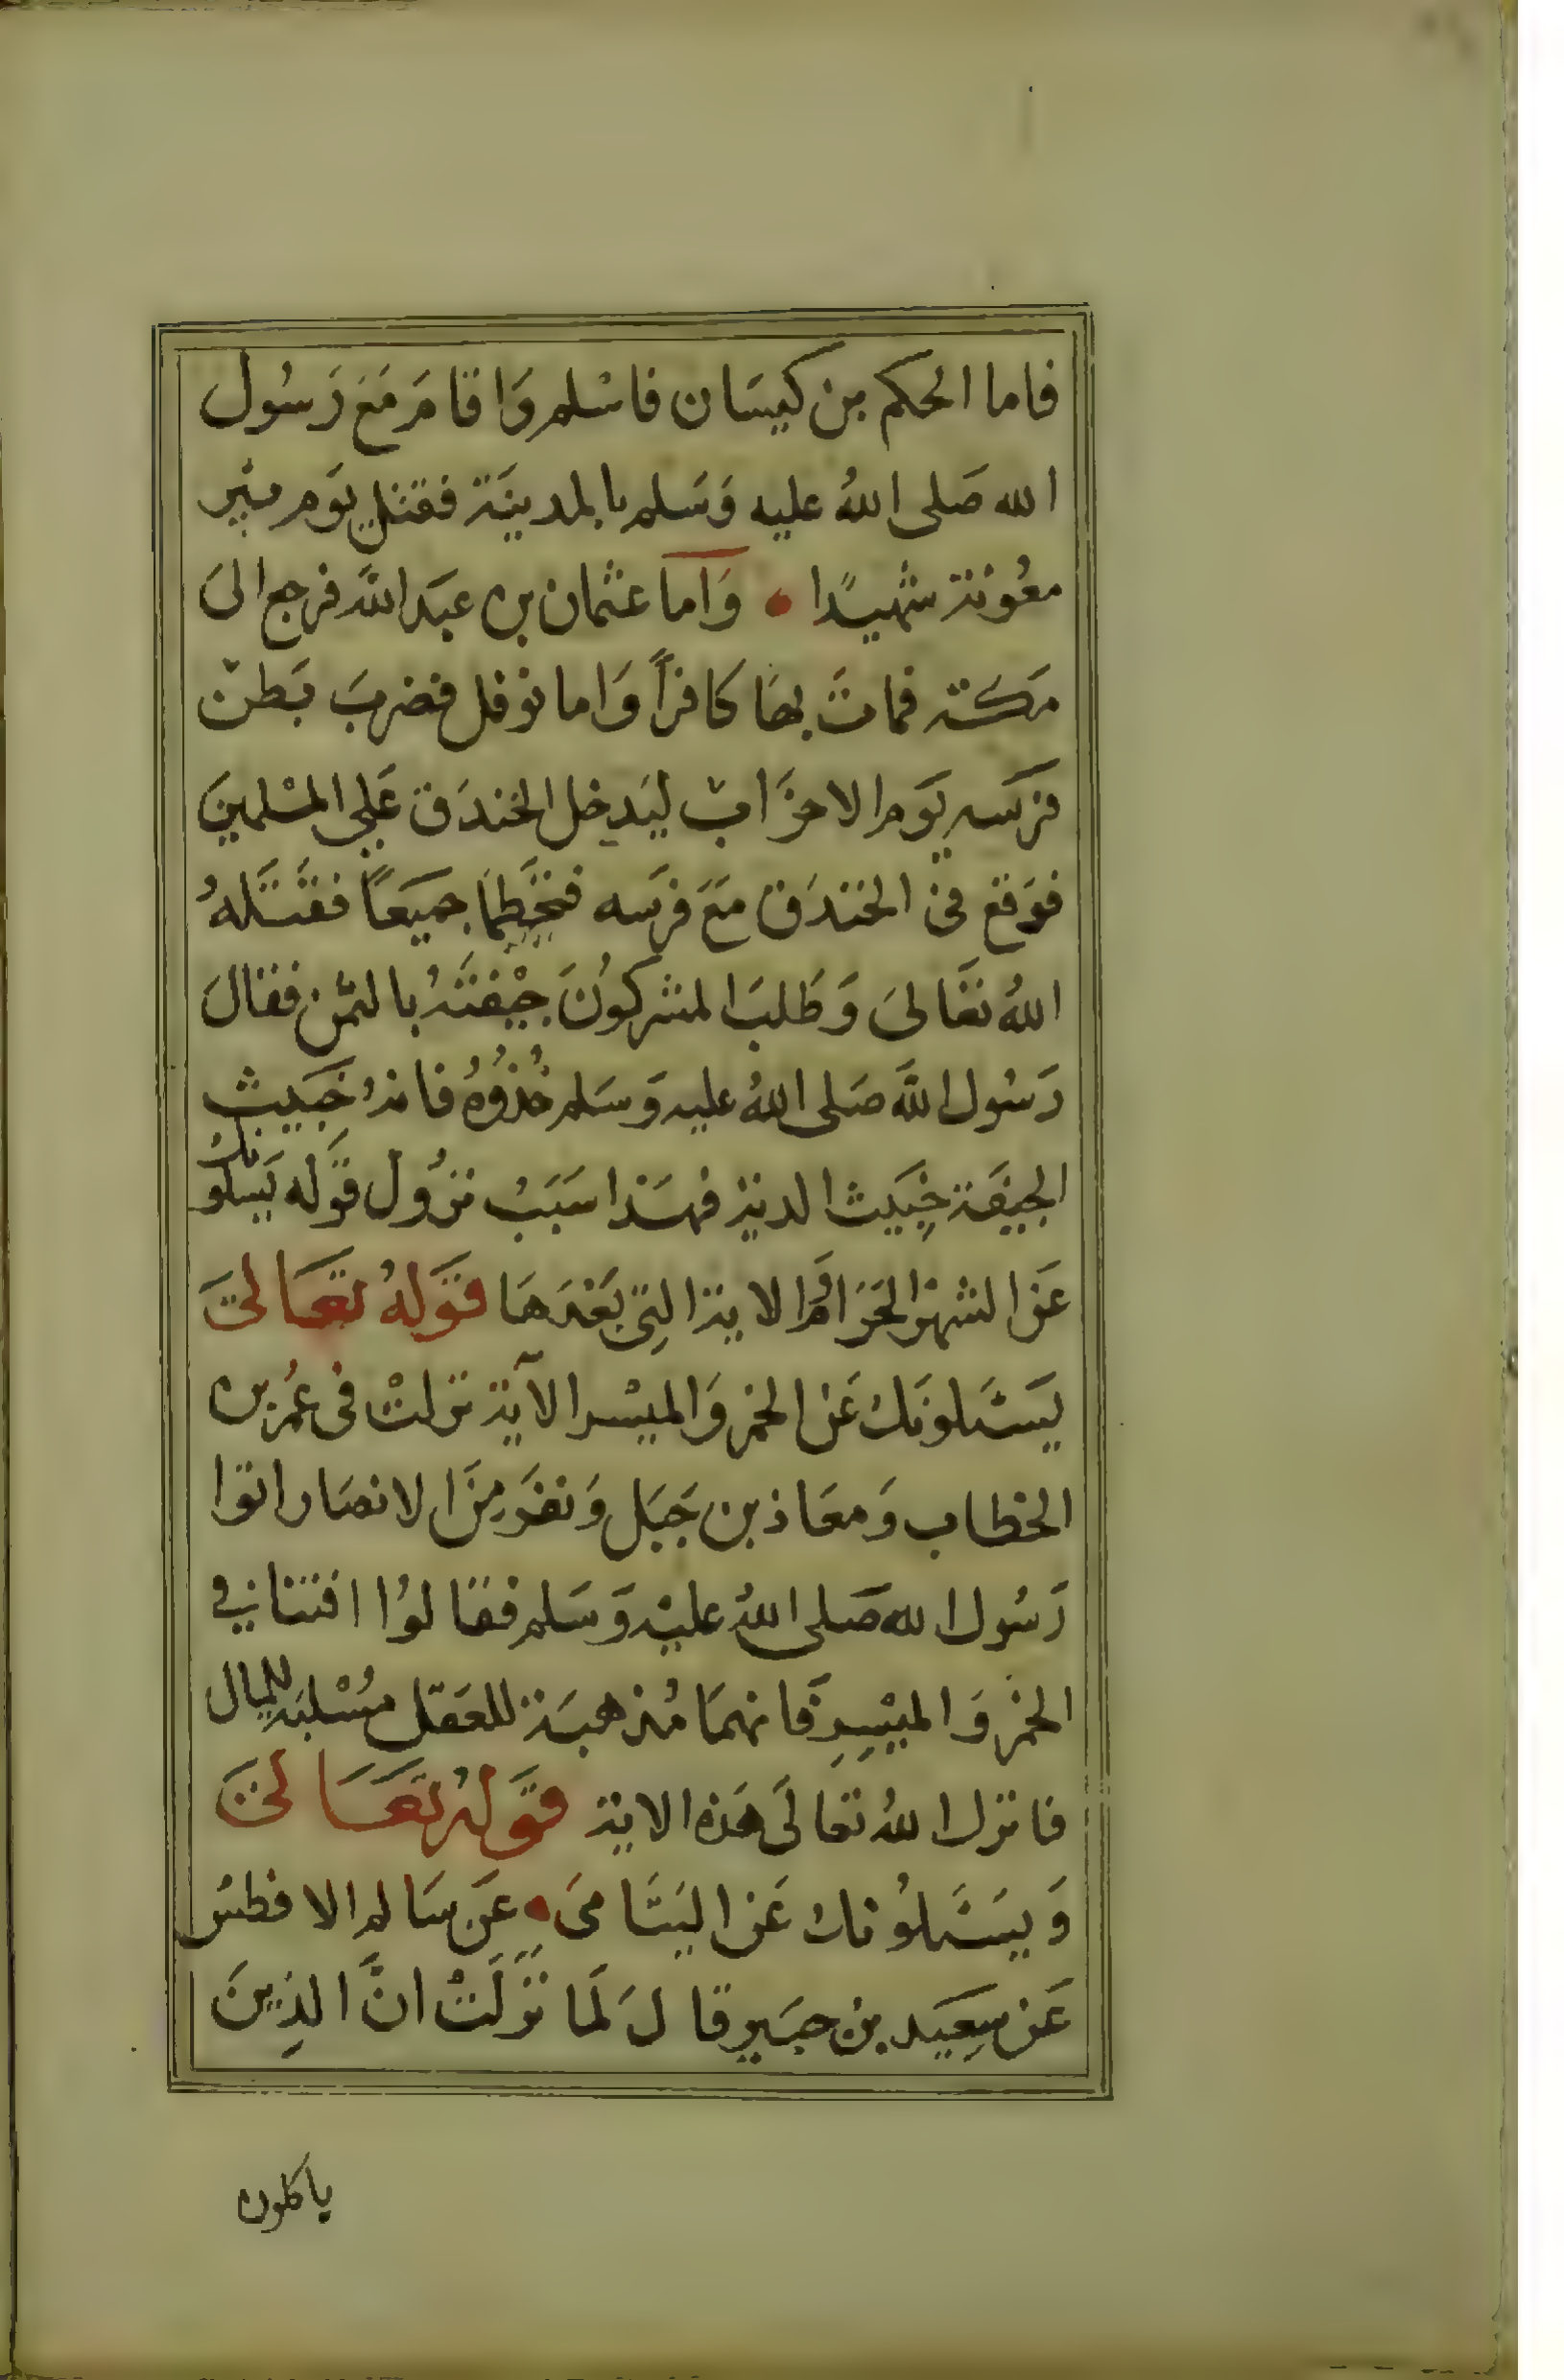 فاما الحكم بن كيسَان فاسْلم وَاقامَ مَعَ رَسُول
الله صَلى اللهُ عليه وَسَلم بالمدينَة فقتل يوَم بئير
معُونة شهيدًا • وَاما عثمان بن عبَد اللهَ فرجع الىَ
مَكة فماتَ بهَا كافراً وَاما نوفل فضربَ بَطن
فرَسه يوَم الاحزَاب ليَدخل الخندَق عَلى المسْلمينَ
فوَقع في الخندَق مَعَ فرَسه فتحَطما جميَعًا فقتَلهُ
اللهُ تعَالىَ وَطَلبَ المشركوُنَ جيْفتهُ بالثمن فقالَ
رَسُول اللهَ صَلى اللهُ عليه وَسَلم خُذوُهُ فانهُ خَبيث
الجيفَة خِبَيث الدية فهَذا سَبَبُ نزُول قوَله يَسلونك
عَن الشهرْ الحَرَام وَالاية التي بَعْدَهَا قوَلهُ تعَالىَ
يسَئَلونَك عَن الخمر وَالميسْر الآية نزلتْ في عُمر بن
الخطاب وَمعَاذ بن جَبَل وَنفرَ مِنَ الانصَار اتوا
رَسُول الله صَلى اللهُ عليْه وَسَلم فقالوُا افتنا في
الخمْر وَالميْسِرِ فَانهمَا مُذهبَة للعَقل مسُْلبة للِمال
فانزل اللهُ تعالىَ هَذه الاية قوَلهُ تعَالىَ
وَيسَئَلوُنك عَن اليَتَامىَ • عَن سَالم الافطسُ
عَن سِعَيد بن جبَير قالَ لَما نَزَلَتْ انَّ الذِينَ
ياكلون